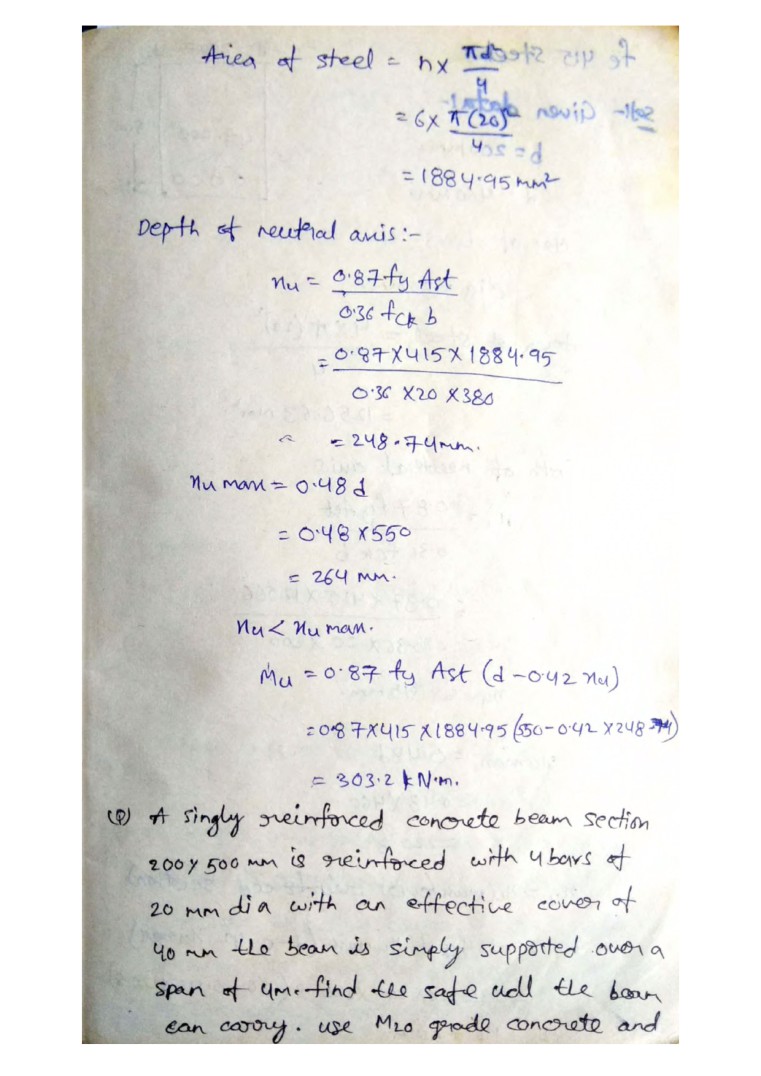 Area of steel = n × πd²/4
= 6 × π(20)²/4
= 1884.95 mm²
Depth of neutral axis :-
xu = 0.87 fy Ast / 0.36 fck b
= 0.87 × 415 × 1884.95 / 0.36 × 20 × 380
= 248.74 mm.
xu max = 0.48 d
= 0.48 × 550
= 264 mm.
xu < xu max.
Mu = 0.87 fy Ast (d - 0.42 xu)
= 0.87 × 415 × 1884.95 (550 - 0.42 × 248.74)
= 303.2 kN.m.
(Q) A singly reinforced concrete beam section
200 × 500 mm is reinforced with 4 bars of
20 mm dia with an effective cover of
40 mm the beam is simply supported over a
span of 4m. find the safe udl the beam
can carry. use M20 grade concrete and